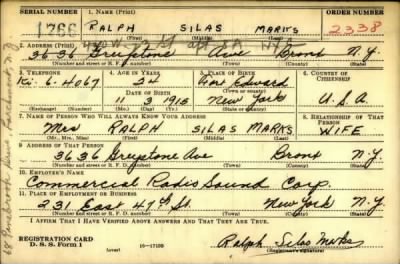 SERIAL NUMBER
1. NAME (Print)
ORDER NUMBER
1766
RALPH SILAS MARKS
2338
(First) (Middle) (Last)
2. ADDRESS (Print)
3636 Greystone Ave Bronx N.Y.
(Number and street or R. F. D. number) (Town) (County) (State)
3. TELEPHONE
4. AGE IN YEARS
5. PLACE OF BIRTH
6. COUNTRY OF CITIZENSHIP
Ki. 6-4067
Fort Edward
DATE OF BIRTH
(Town or county)
11 3 1915
New York
U.S.A.
(Exchange) (Number)
(Mo.) (Day) (Yr.)
(State or country)
7. NAME OF PERSON WHO WILL ALWAYS KNOW YOUR ADDRESS
8. RELATIONSHIP OF THAT PERSON
Mrs RALPH SILAS MARKS WIFE
(Mr., Mrs., Miss) (First) (Middle) (Last)
9. ADDRESS OF THAT PERSON
3636 Greystone Ave Bronx N.Y.
(Number and street or R. F. D. number) (Town) (County) (State)
10. EMPLOYER'S NAME
Commercial Radio Sound Corp.
11. PLACE OF EMPLOYMENT OR BUSINESS
231 East 47th St New York N.Y.
(Number and street or R. F. D. number) (Town) (County) (State)
I AFFIRM THAT I HAVE VERIFIED ABOVE ANSWERS AND THAT THEY ARE TRUE.
REGISTRATION CARD
D. S. S. Form 1
(over) 16-17105
Ralph Silas Marks
(Registrant's signature)